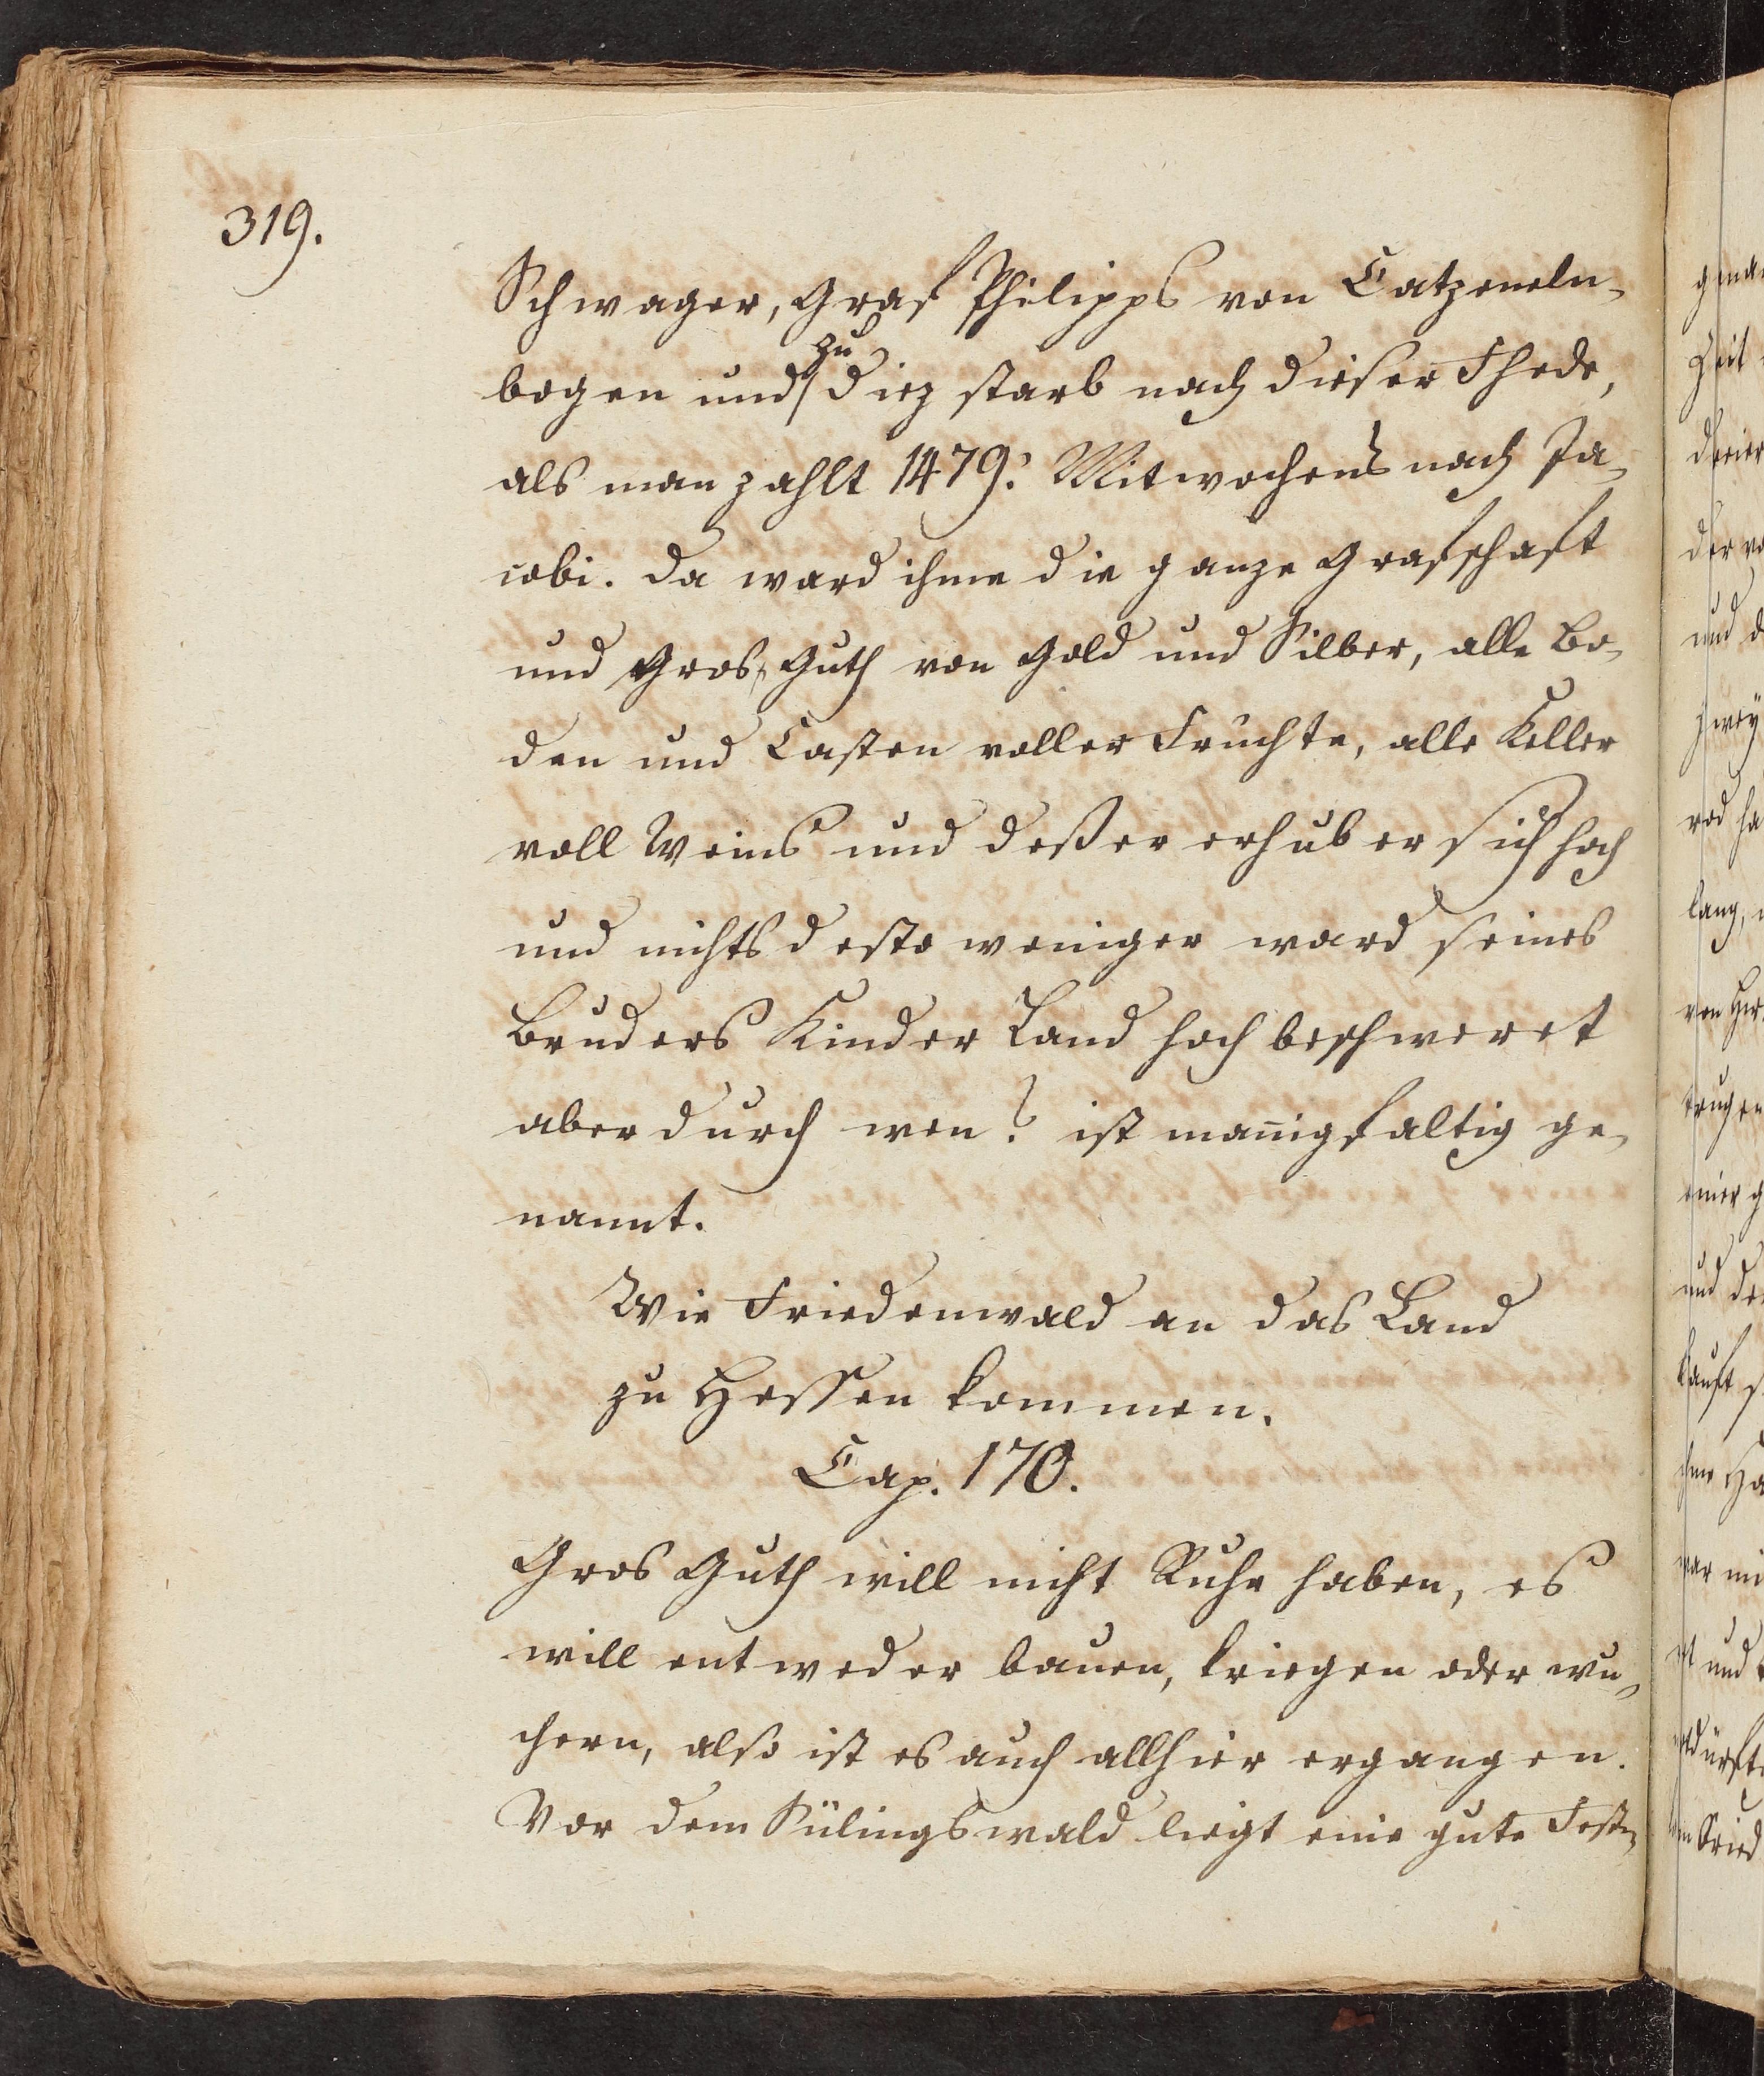 319.
Schwager, Graf Philipps von Catzeneln-
zu
bogen und Diez starb nach dieser Fhede,
als man zahlt 1479. Mitwochens nach Ja-
cobi. Da ward ihme die ganze Grafschaft
und Gros Guth von Gold und Silber, alle Bo-
den und Casten voller Fruchte, alle Keller
voll Weins und deßer erhub er sich hoch
und nichts desto weniger ward seines
Bruders Kinder Land hoch beschweret
aber durch wen? ist mannigfaltig ge-
nannt.
Wie Friedenwald an das Land
zu Hessen kommen.
Cap. 170.
Gros Guth will nicht Ruhe haben, es
will entweder bauen, kriegen oder wu-
chern, also ist es auch allhier ergangen.
Vor dem Sülingswald liegt eine gute Fest-